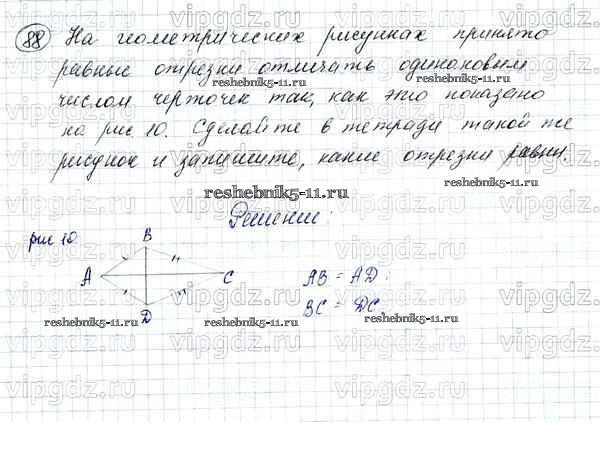 88 На геометрических рисунках принято
равные отрезки отмечать одинаковым
числом черточек так, как это показано
на рис 10. Сделайте в тетради такой же
рисунок и запишите, какие отрезки равны.
Решение:
рис 10
B
A
C
D
AB = AD;
BC = DC.
vipgdz.com
reshebnik5-11.ru